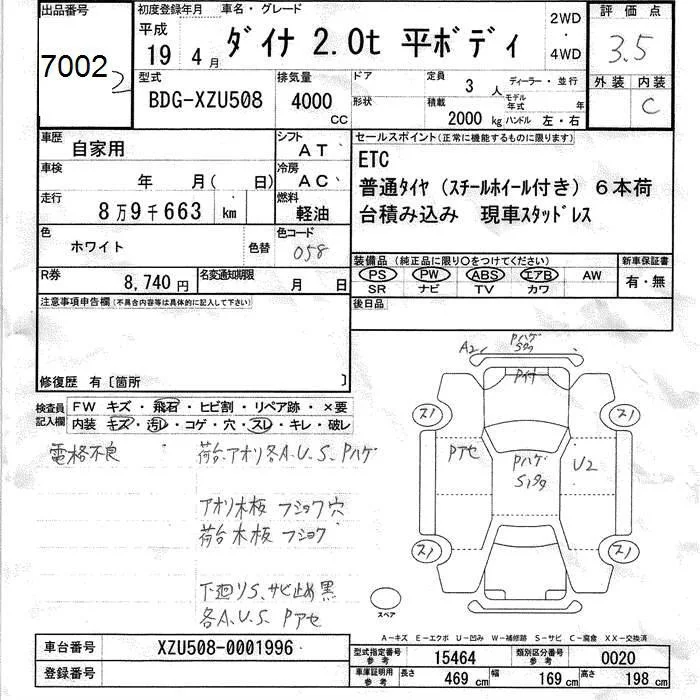 出品番号
7002 2
初度登録年月 車名・グレード
平成 19 4月
ダイナ 2.0t 平ボディ
2WD ・ 4WD
評価点
3.5
外装 内装
C
型式
BDG-XZU508
排気量
4000 cc
ドア
形状
定員 3 人
積載 2000 kg
ディーラー・並行
モデル年式 年
ハンドル 左・右
車歴
自家用
シフト
AT
セールスポイント(正常に機能するものに限ります)
ETC
普通タイヤ(スチールホイール付き)6本荷
台積み込み 現車スタッドレス
車検
年 月( 日)
冷房
AC
走行
8万9千663 km
燃料
軽油
色
ホワイト
色替
色コード
058
装備品(純正品に限り○をつけてください)
PS PW ABS エアB AW
SR ナビ TV カワ
新車保証書
有・無
R券
8,740円
名変通知期限
月 日
後日品
注意事項申告欄(不具合内容等は具体的に記入して下さい)
修復歴 有〔箇所 〕
検査員記入欄
FW キズ・飛石・ヒビ割・リペア跡・×要
内装 キズ・汚レ・コゲ・穴・スレ・キレ・破レ
電格不良
荷台、アオリ各A.U.S.Pハゲ
アオリ木板 フショク穴
荷台木板 フショク
下廻りS、サビ止め黒
各A.U.S Pアセ
A2
Pハゲ
スノ
スノ
Pアセ
Pハゲ
U2
スノ
スノ
スペア
A-キズ E-エクボ U-凹み W-補修跡 S-サビ C-腐食 XX-交換済
車台番号
XZU508-0001996
型式指定番号 参考
15464
類別区分番号 参考
0020
登録番号
車庫証明用 参考
長さ 469 cm
幅 169 cm
高さ 198 cm